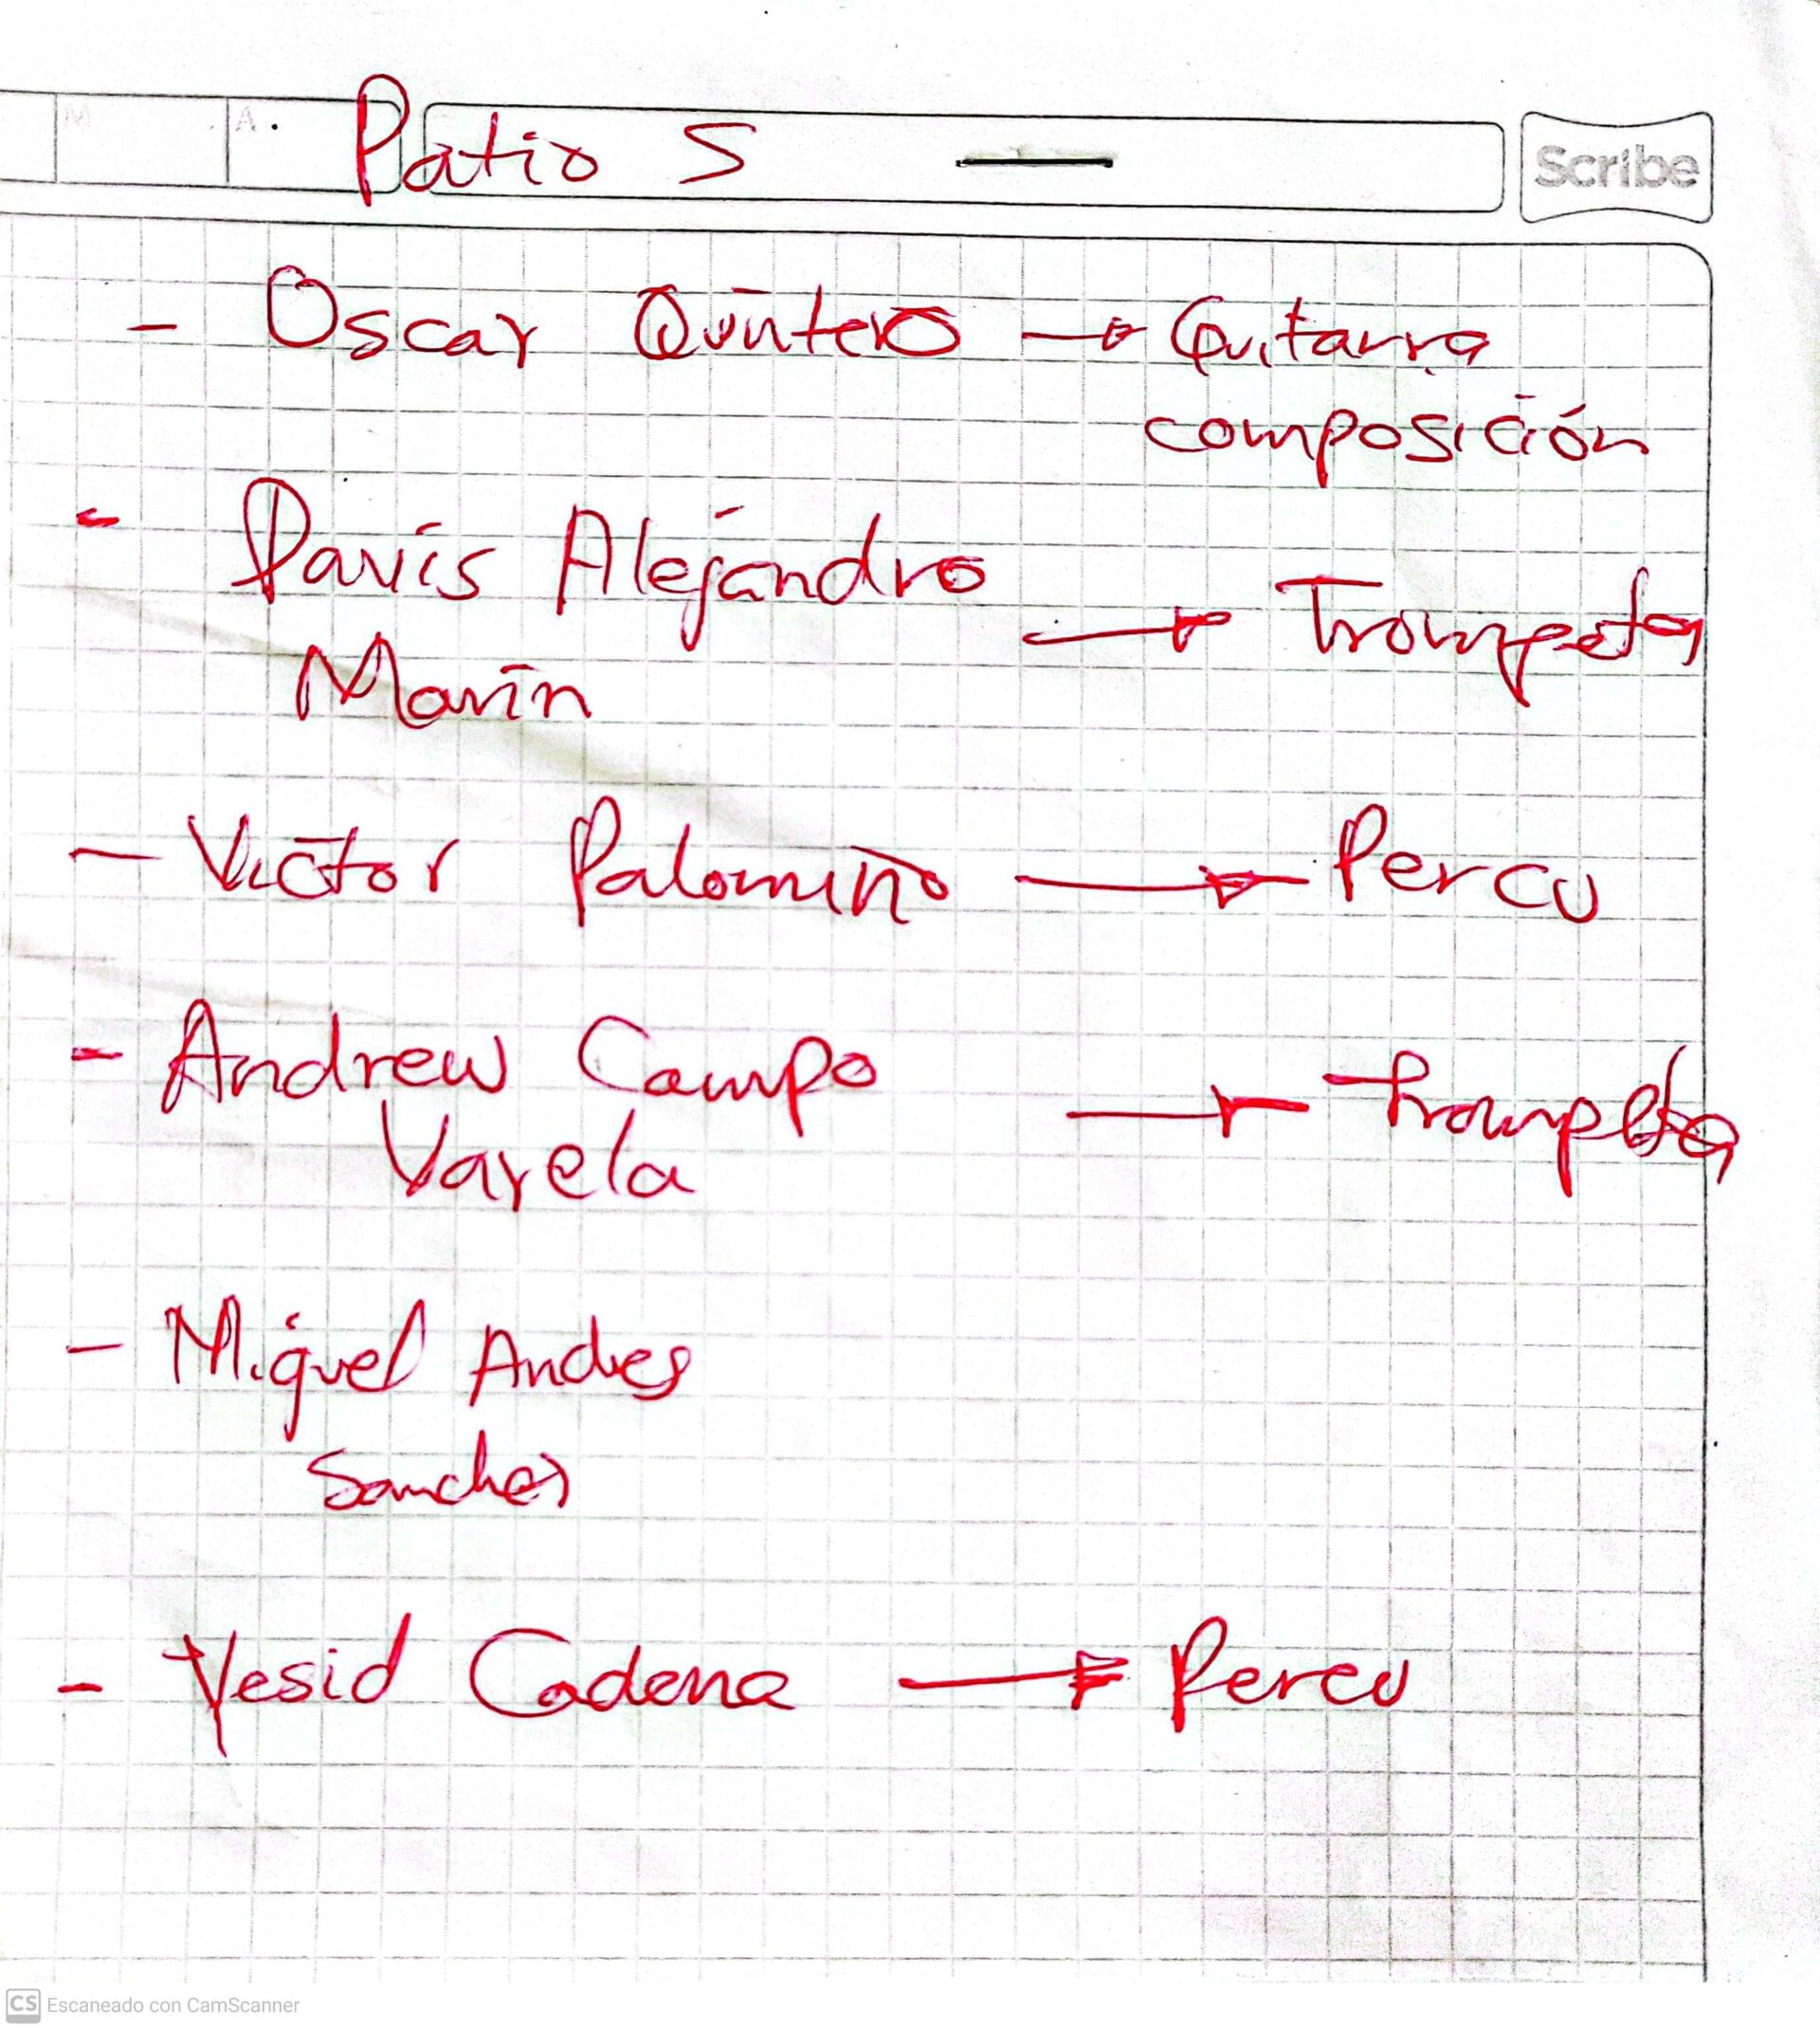 M A
Patio 5 —
Scribe
- Oscar Quintero → Guitarra
composición
- Paris Alejandro
Marin → Trompeta
- Victor Palomino → Percu
- Andrew Campo
Varela → Trompeta
- Miguel Andres
Sanchez
- Yesid Cadena → Percu
CS Escaneado con CamScanner